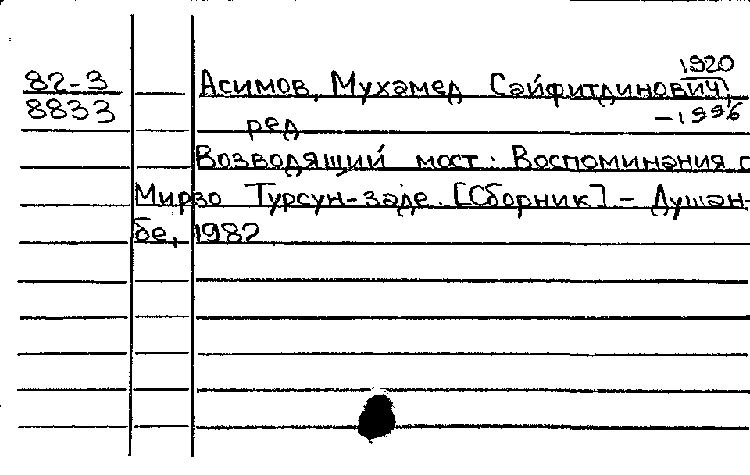 1920
82-3 Асимов, Мухамед Сайфитдинович,
8833 -1996
ред
Возводящий мост: Воспоминания о
Мирзо Турсун-заде. [Сборник] - Душан-
бе, 1982